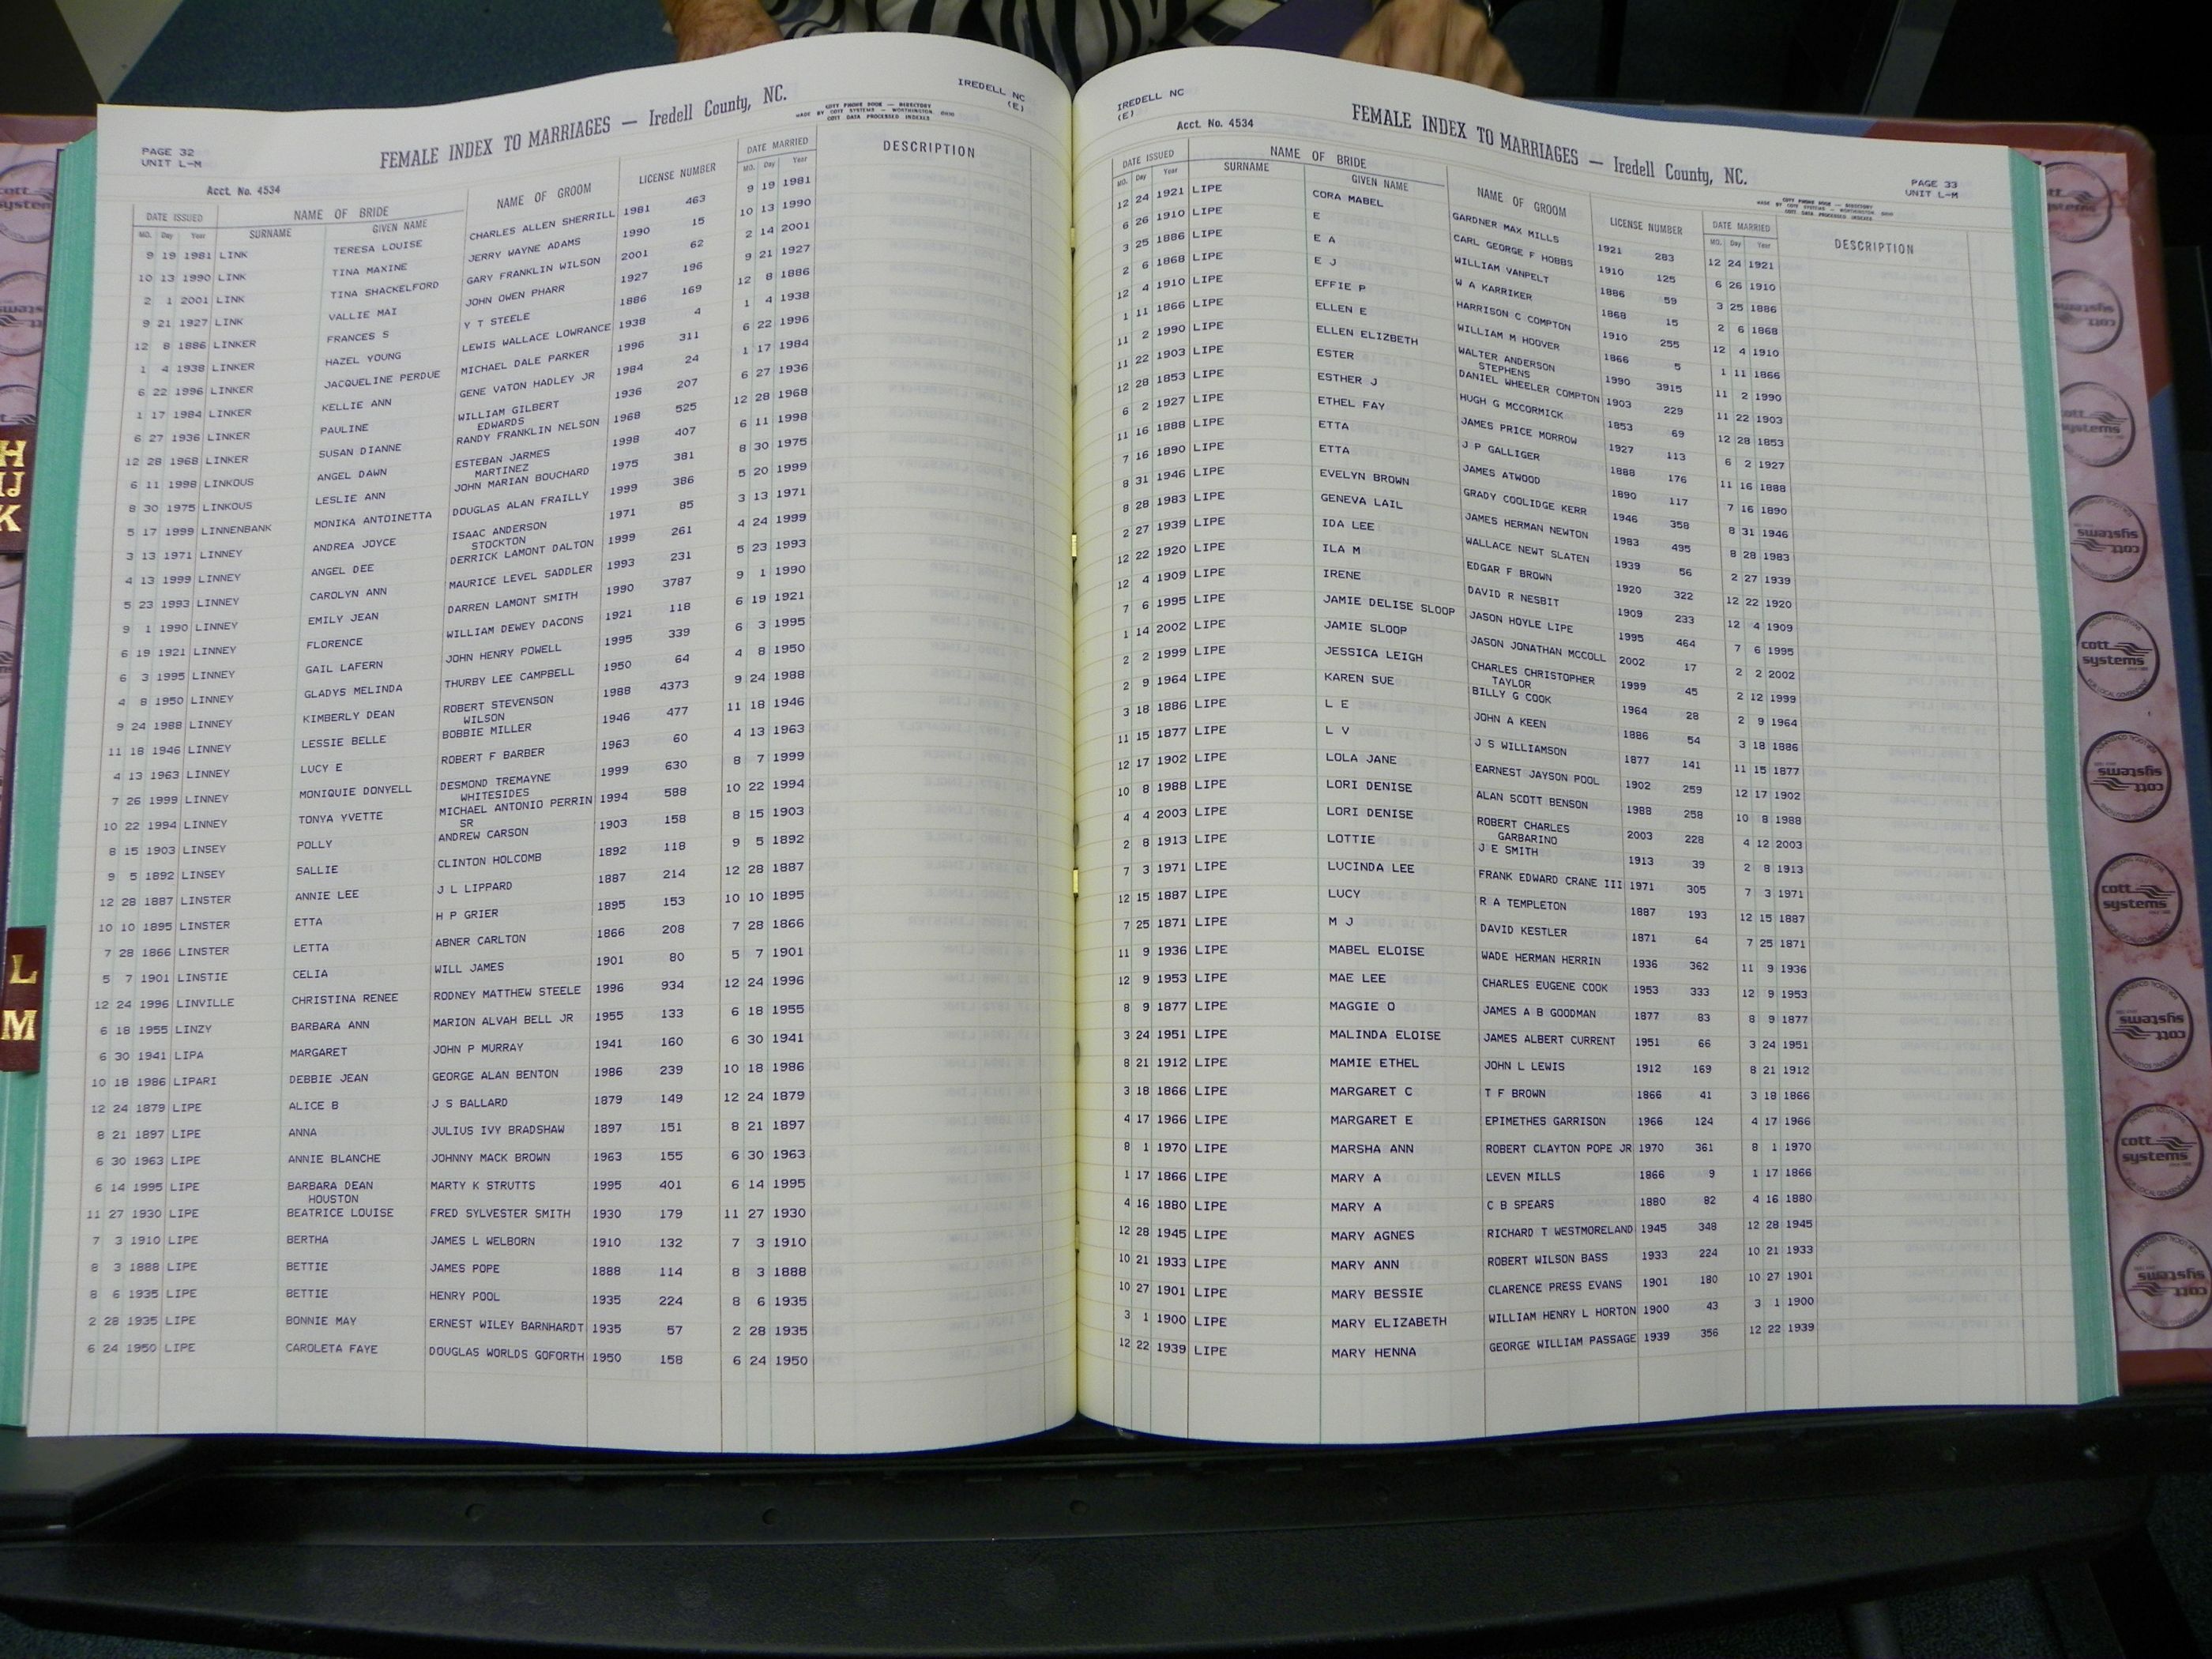 IREDELL NC
(E)
FEMALE INDEX TO MARRIAGES — Iredell County, NC.
COTT PHONE BOOK — DIRECTORY
MADE BY COTT SYSTEMS — WORTHINGTON OHIO
COTT DATA PROCESSED INDEXES
PAGE 32
UNIT L-M
Acct. No. 4534
DATE ISSUED NAME OF BRIDE NAME OF GROOM LICENSE NUMBER DATE MARRIED DESCRIPTION
MO. Day Year SURNAME GIVEN NAME MO. Day Year
9 19 1981 LINK TERESA LOUISE CHARLES ALLEN SHERRILL 1981 463 9 19 1981
10 13 1990 LINK TINA MAXINE JERRY WAYNE ADAMS 1990 15 10 13 1990
2 1 2001 LINK TINA SHACKELFORD GARY FRANKLIN WILSON 2001 62 2 14 2001
9 21 1927 LINK VALLIE MAI JOHN OWEN PHARR 1927 196 9 21 1927
12 8 1886 LINKER FRANCES S Y T STEELE 1886 169 12 8 1886
1 4 1938 LINKER HAZEL YOUNG LEWIS WALLACE LOWRANCE 1938 4 1 4 1938
6 22 1996 LINKER JACQUELINE PERDUE MICHAEL DALE PARKER 1996 311 6 22 1996
1 17 1984 LINKER KELLIE ANN GENE VATON HADLEY JR 1984 24 1 17 1984
6 27 1936 LINKER PAULINE WILLIAM GILBERT 1936 207 6 27 1936
EDWARDS
12 28 1968 LINKER SUSAN DIANNE RANDY FRANKLIN NELSON 1968 525 12 28 1968
6 11 1998 LINKOUS ANGEL DAWN ESTEBAN JARMES 1998 407 6 11 1998
MARTINEZ
8 30 1975 LINKOUS LESLIE ANN JOHN MARIAN BOUCHARD 1975 381 8 30 1975
5 17 1999 LINNENBANK MONIKA ANTOINETTA DOUGLAS ALAN FRAILLY 1999 386 5 20 1999
3 13 1971 LINNEY ANDREA JOYCE ISAAC ANDERSON 1971 85 3 13 1971
STOCKTON
4 13 1999 LINNEY ANGEL DEE DERRICK LAMONT DALTON 1999 261 4 24 1999
5 23 1993 LINNEY CAROLYN ANN MAURICE LEVEL SADDLER 1993 231 5 23 1993
9 1 1990 LINNEY EMILY JEAN DARREN LAMONT SMITH 1990 3787 9 1 1990
6 19 1921 LINNEY FLORENCE WILLIAM DEWEY DACONS 1921 118 6 19 1921
6 3 1995 LINNEY GAIL LAFERN JOHN HENRY POWELL 1995 339 6 3 1995
4 8 1950 LINNEY GLADYS MELINDA THURBY LEE CAMPBELL 1950 64 4 8 1950
9 24 1988 LINNEY KIMBERLY DEAN ROBERT STEVENSON 1988 4373 9 24 1988
WILSON
11 18 1946 LINNEY LESSIE BELLE BOBBIE MILLER 1946 477 11 18 1946
4 13 1963 LINNEY LUCY E ROBERT F BARBER 1963 60 4 13 1963
7 26 1999 LINNEY MONIQUIE DONYELL DESMOND TREMAYNE 1999 630 8 7 1999
WHITESIDES
10 22 1994 LINNEY TONYA YVETTE MICHAEL ANTONIO PERRIN 1994 588 10 22 1994
SR
8 15 1903 LINSEY POLLY ANDREW CARSON 1903 158 8 15 1903
9 5 1892 LINSEY SALLIE CLINTON HOLCOMB 1892 118 9 5 1892
12 28 1887 LINSTER ANNIE LEE J L LIPPARD 1887 214 12 28 1887
10 10 1895 LINSTER ETTA H P GRIER 1895 153 10 10 1895
7 28 1866 LINSTER LETTA ABNER CARLTON 1866 208 7 28 1866
5 7 1901 LINSTIE CELIA WILL JAMES 1901 80 5 7 1901
12 24 1996 LINVILLE CHRISTINA RENEE RODNEY MATTHEW STEELE 1996 934 12 24 1996
6 18 1955 LINZY BARBARA ANN MARION ALVAH BELL JR 1955 133 6 18 1955
6 30 1941 LIPA MARGARET JOHN P MURRAY 1941 160 6 30 1941
10 18 1986 LIPARI DEBBIE JEAN GEORGE ALAN BENTON 1986 239 10 18 1986
12 24 1879 LIPE ALICE B J S BALLARD 1879 149 12 24 1879
8 21 1897 LIPE ANNA JULIUS IVY BRADSHAW 1897 151 8 21 1897
6 30 1963 LIPE ANNIE BLANCHE JOHNNY MACK BROWN 1963 155 6 30 1963
6 14 1995 LIPE BARBARA DEAN MARTY K STRUTTS 1995 401 6 14 1995
HOUSTON
11 27 1930 LIPE BEATRICE LOUISE FRED SYLVESTER SMITH 1930 179 11 27 1930
7 3 1910 LIPE BERTHA JAMES L WELBORN 1910 132 7 3 1910
8 3 1888 LIPE BETTIE JAMES POPE 1888 114 8 3 1888
8 6 1935 LIPE BETTIE HENRY POOL 1935 224 8 6 1935
2 28 1935 LIPE BONNIE MAY ERNEST WILEY BARNHARDT 1935 57 2 28 1935
6 24 1950 LIPE CAROLETA FAYE DOUGLAS WORLDS GOFORTH 1950 158 6 24 1950
IREDELL NC
(E)
Acct. No. 4534
FEMALE INDEX TO MARRIAGES — Iredell County, NC.
PAGE 33
UNIT L-M
COTT PHONE BOOK — DIRECTORY
MADE BY COTT SYSTEMS — WORTHINGTON OHIO
COTT DATA PROCESSED INDEXES
DATE ISSUED NAME OF BRIDE NAME OF GROOM LICENSE NUMBER DATE MARRIED DESCRIPTION
MO. Day Year SURNAME GIVEN NAME MO. Day Year
12 24 1921 LIPE CORA MABEL GARDNER MAX MILLS 1921 283 12 24 1921
6 26 1910 LIPE E CARL GEORGE F HOBBS 1910 125 6 26 1910
3 25 1886 LIPE E A WILLIAM VANPELT 1886 59 3 25 1886
2 6 1868 LIPE E J W A KARRIKER 1868 15 2 6 1868
12 4 1910 LIPE EFFIE P HARRISON C COMPTON 1910 255 12 4 1910
1 11 1866 LIPE ELLEN E WILLIAM M HOOVER 1866 5 1 11 1866
11 2 1990 LIPE ELLEN ELIZBETH WALTER ANDERSON 1990 3915 11 2 1990
STEPHENS
11 22 1903 LIPE ESTER DANIEL WHEELER COMPTON 1903 229 11 22 1903
12 28 1853 LIPE ESTHER J HUGH G MCCORMICK 1853 69 12 28 1853
6 2 1927 LIPE ETHEL FAY JAMES PRICE MORROW 1927 113 6 2 1927
11 16 1888 LIPE ETTA J P GALLIGER 1888 176 11 16 1888
7 16 1890 LIPE ETTA JAMES ATWOOD 1890 117 7 16 1890
8 31 1946 LIPE EVELYN BROWN GRADY COOLIDGE KERR 1946 358 8 31 1946
8 28 1983 LIPE GENEVA LAIL JAMES HERMAN NEWTON 1983 495 8 28 1983
2 27 1939 LIPE IDA LEE WALLACE NEWT SLATEN 1939 56 2 27 1939
12 22 1920 LIPE ILA M EDGAR F BROWN 1920 322 12 22 1920
12 4 1909 LIPE IRENE DAVID R NESBIT 1909 233 12 4 1909
7 6 1995 LIPE JAMIE DELISE SLOOP JASON HOYLE LIPE 1995 464 7 6 1995
1 14 2002 LIPE JAMIE SLOOP JASON JONATHAN MCCOLL 2002 17 2 2 2002
2 2 1999 LIPE JESSICA LEIGH CHARLES CHRISTOPHER 1999 45 2 12 1999
TAYLOR
2 9 1964 LIPE KAREN SUE BILLY G COOK 1964 28 2 9 1964
3 18 1886 LIPE L E JOHN A KEEN 1886 54 3 18 1886
11 15 1877 LIPE L V J S WILLIAMSON 1877 141 11 15 1877
12 17 1902 LIPE LOLA JANE EARNEST JAYSON POOL 1902 259 12 17 1902
10 8 1988 LIPE LORI DENISE ALAN SCOTT BENSON 1988 258 10 8 1988
4 4 2003 LIPE LORI DENISE ROBERT CHARLES 2003 228 4 12 2003
GARBARINO
2 8 1913 LIPE LOTTIE J E SMITH 1913 39 2 8 1913
7 3 1971 LIPE LUCINDA LEE FRANK EDWARD CRANE III 1971 305 7 3 1971
12 15 1887 LIPE LUCY R A TEMPLETON 1887 193 12 15 1887
7 25 1871 LIPE M J DAVID KESTLER 1871 64 7 25 1871
11 9 1936 LIPE MABEL ELOISE WADE HERMAN HERRIN 1936 362 11 9 1936
12 9 1953 LIPE MAE LEE CHARLES EUGENE COOK 1953 333 12 9 1953
8 9 1877 LIPE MAGGIE O JAMES A B GOODMAN 1877 83 8 9 1877
3 24 1951 LIPE MALINDA ELOISE JAMES ALBERT CURRENT 1951 66 3 24 1951
8 21 1912 LIPE MAMIE ETHEL JOHN L LEWIS 1912 169 8 21 1912
3 18 1866 LIPE MARGARET C T F BROWN 1866 41 3 18 1866
4 17 1966 LIPE MARGARET E EPIMETHES GARRISON 1966 124 4 17 1966
8 1 1970 LIPE MARSHA ANN ROBERT CLAYTON POPE JR 1970 361 8 1 1970
1 17 1866 LIPE MARY A LEVEN MILLS 1866 9 1 17 1866
4 16 1880 LIPE MARY A C B SPEARS 1880 82 4 16 1880
12 28 1945 LIPE MARY AGNES RICHARD T WESTMORELAND 1945 348 12 28 1945
10 21 1933 LIPE MARY ANN ROBERT WILSON BASS 1933 224 10 21 1933
10 27 1901 LIPE MARY BESSIE CLARENCE PRESS EVANS 1901 180 10 27 1901
3 1 1900 LIPE MARY ELIZABETH WILLIAM HENRY L HORTON 1900 43 3 1 1900
12 22 1939 LIPE MARY HENNA GEORGE WILLIAM PASSAGE 1939 356 12 22 1939
H
IJ
K
L
M
cott
systems
cott
systems
cott
systems
cott
systems
cott
systems
cott
systems
cott
systems